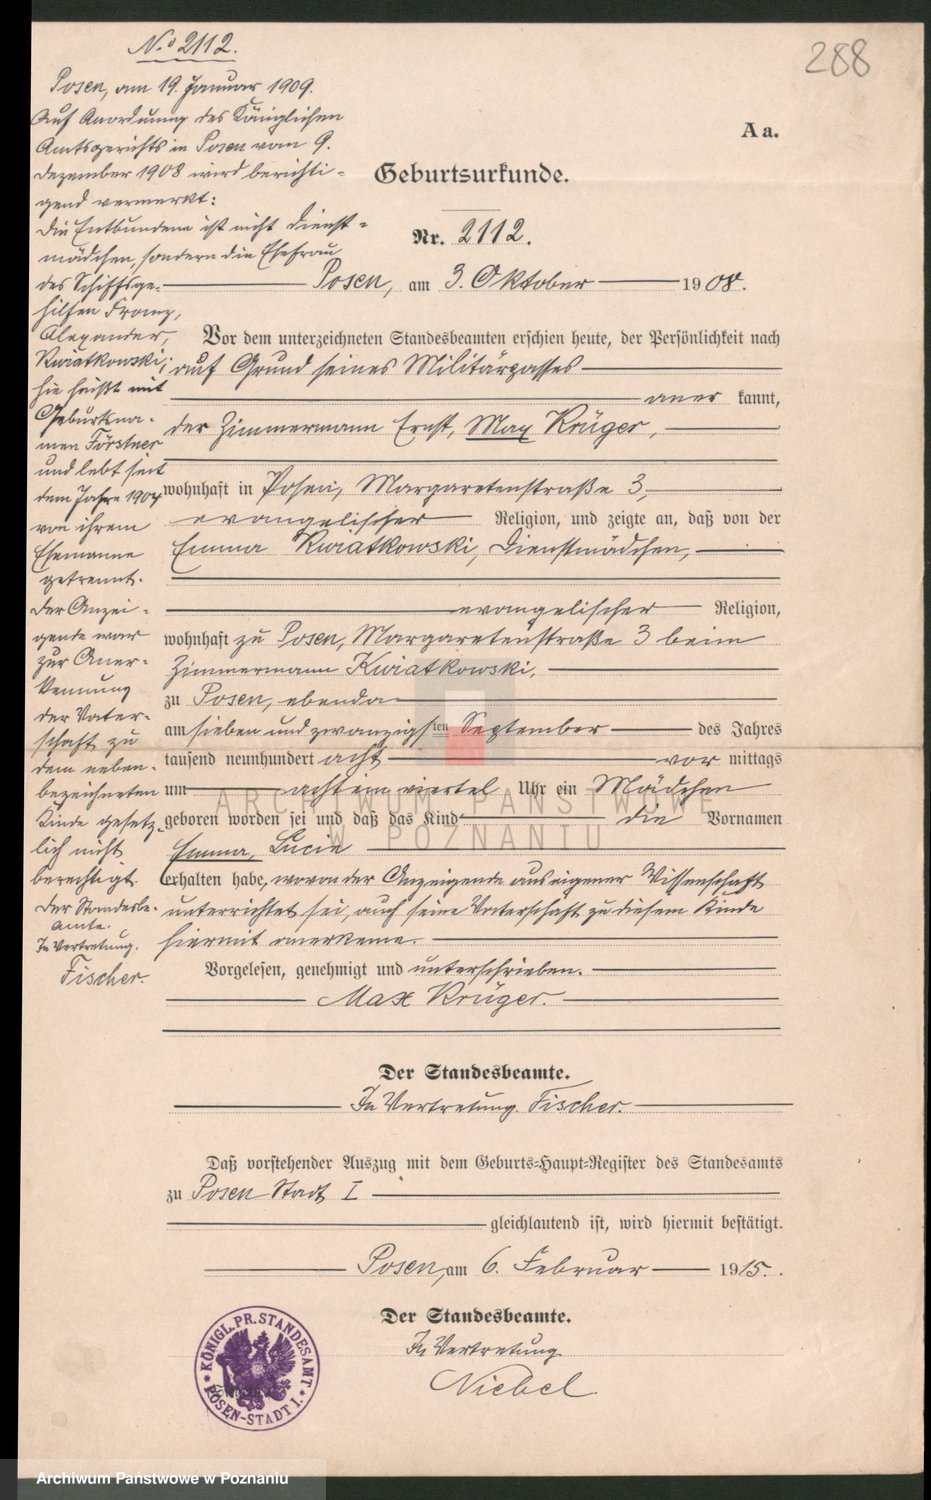 288
A a.
No 2112.
Posen, am 19. Januar 1909.
Auf Anordnung des Königlichen
Amtsgerichts in Posen vom 9.
Dezember 1908 wird berichti-
gend vermerkt:
Die Entbundene ist nicht Dienst-
mädchen, sondern die Ehefrau
des Schiffsge-
hilfen Franz,
Alexander,
Kwiatkowski;
sie heißt mit
Geburtsna-
men Förstner
und lebt seit
dem Jahre 1904
von ihrem
Ehemanne
getrennt.
Der Anzei-
gende war
zur Aner-
kennung
der Vater-
schaft zu
dem neben-
bezeichneten
Kinde gesetz-
lich nicht
berechtigt.
Der Standesbe-
amte.
In Vertretung.
Fischer.
Geburtsurkunde.
Nr. 2112.
Posen, am 3. Oktober 1908.
Vor dem unterzeichneten Standesbeamten erschien heute, der Persönlichkeit nach
auf Grund seines Militärpasses
aner kannt,
der Zimmermann Ernst, Max Krüger,
wohnhaft in Posen, Margaretenstraße 3,
evangelischer Religion, und zeigte an, daß von der
Emma Kwiatkowski, Dienstmädchen,
evangelischer Religion,
wohnhaft zu Posen, Margaretenstraße 3 beim
Zimmermann Kwiatkowski,
zu Posen, ebenda
am sieben und zwanzigsten September des Jahres
tausend neunhundert acht vor mittags
um acht ein viertel Uhr ein Mädchen
geboren worden sei und daß das Kind die Vornamen
Emma, Lucie
erhalten habe, wovon der Anzeigende aus eigener Wissenschaft
unterrichtet sei, auch seine Vaterschaft zu diesem Kinde
hiermit anerkenne.
Vorgelesen, genehmigt und unterschrieben.
Max Krüger.
Der Standesbeamte.
In Vertretung. Fischer.
Daß vorstehender Auszug mit dem Geburts-Haupt-Register des Standesamts
zu Posen Stadt I
gleichlautend ist, wird hiermit bestätigt.
Posen, am 6. Februar 1915.
Der Standesbeamte.
In Vertretung
Niebel
KÖNIGL. PR. STANDESAMT
POSEN-STADT I.
ARCHIWUM PAŃSTWOWE
W POZNANIU
Archiwum Państwowe w Poznaniu